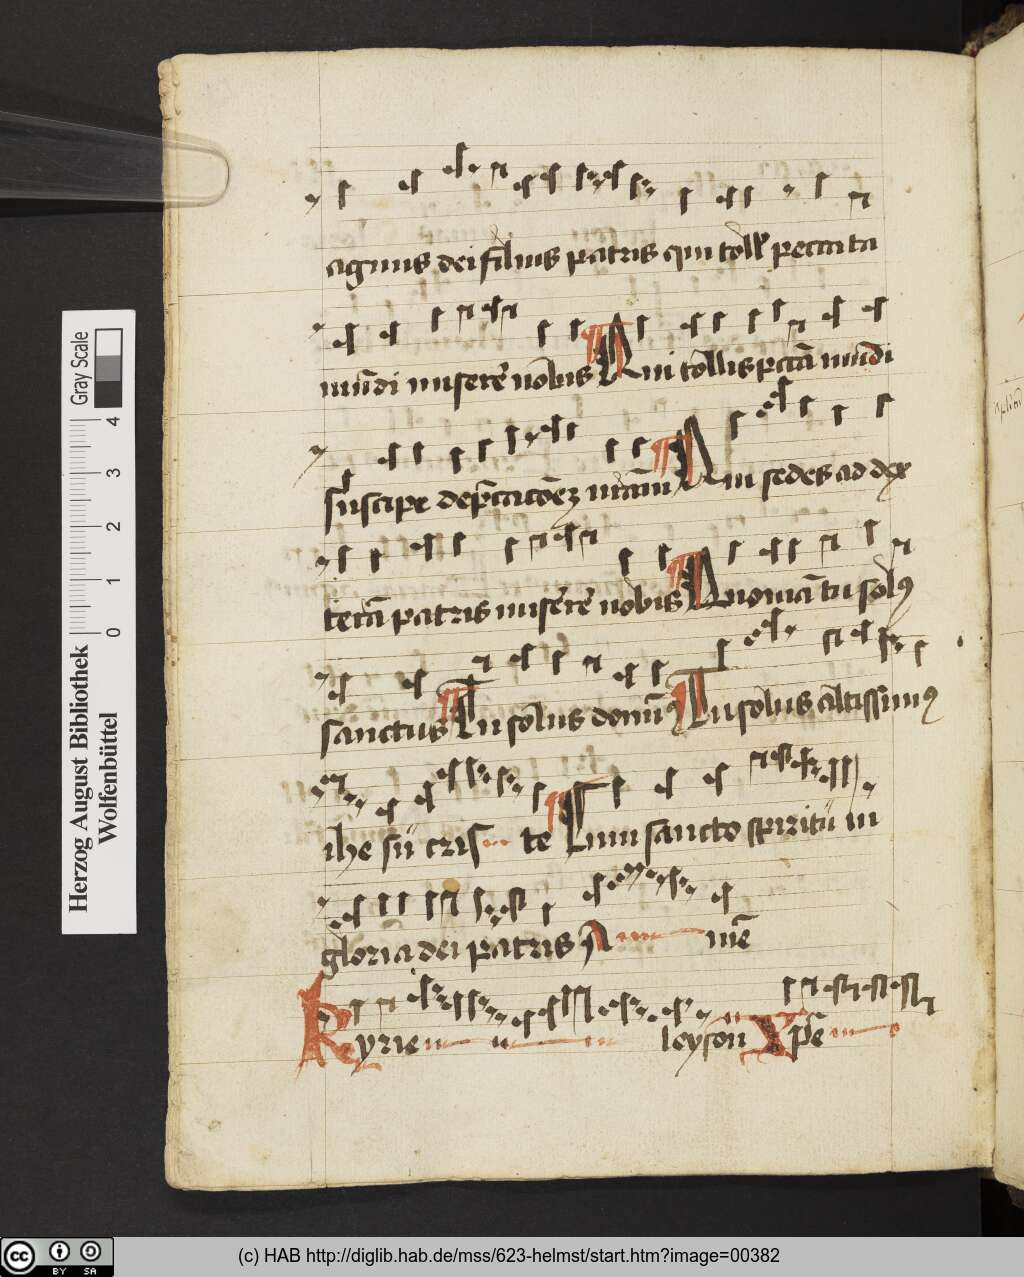 agnus dei filius patris qui toll' peccata
mūdi miserē nobis Qui tollis pctā mūdi
suscipe dep̄cacōeꝫ nr̄am Qui sedes ad dex
terā patris miserē nobis Quoniā tu solꝰ
sanctus Tu solus domīꝰ Tu solus altissimꝰ
ihe sū cris te Cum sancto spiritū in
gloria dei patris A mē
Kyrie leyson Xp̄e
Herzog August Bibliothek
Wolfenbüttel
0 1 2 3 4
Gray Scale
cc BY SA
(c) HAB http://diglib.hab.de/mss/623-helmst/start.htm?image=00382